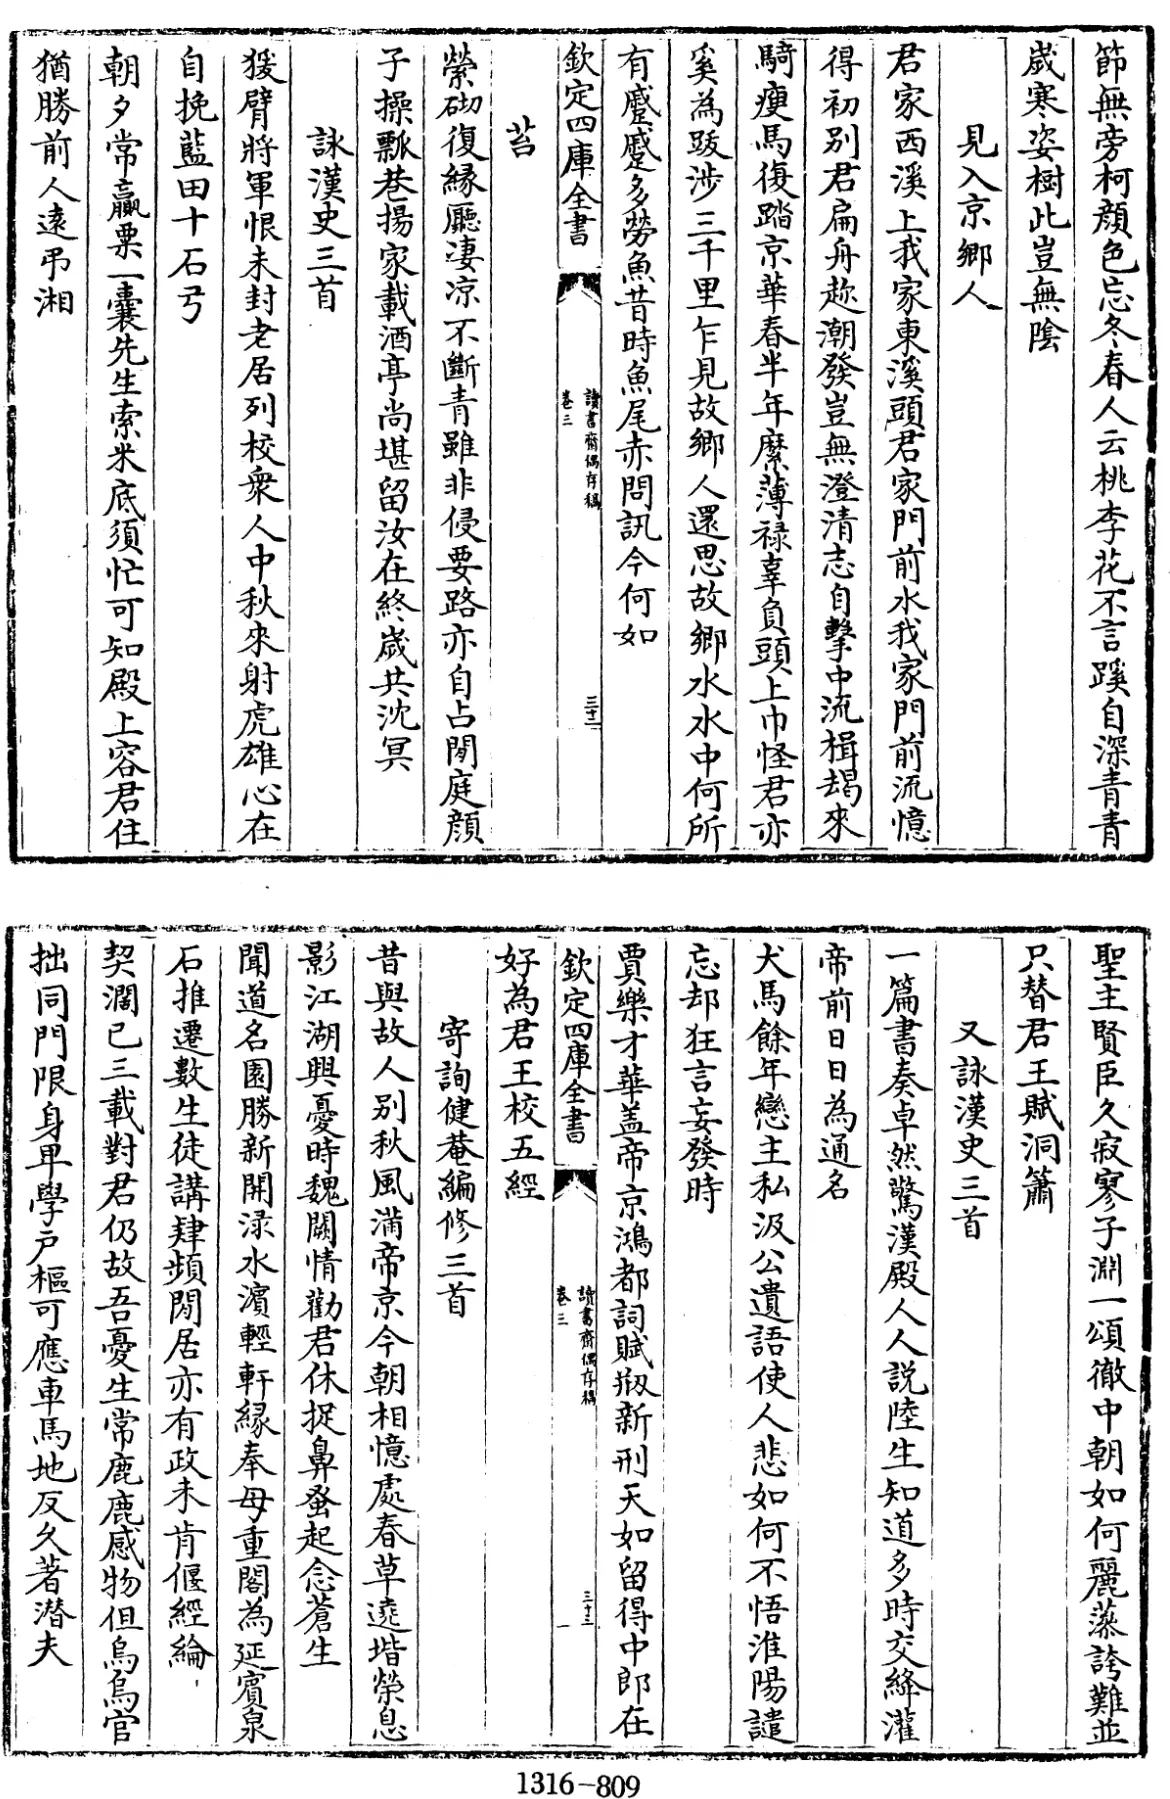 節無旁柯顔色忘冬春人云桃李花不言蹊自深青青
歲寒姿樹此豈無陰
見入京鄉人
君家西溪上我家東溪頭君家門前水我家門前流憶
得初别君扁舟趂潮發豈無澄清志自擊中流楫朅來
騎瘦馬復踏京華春半年縻薄禄辜負頭上巾怪君亦
奚為跋涉三千里乍見故鄉人還思故鄉水水中何所
有蹙蹙多勞魚昔時魚尾赤問訊今何如
欽定四庫全書
讀書齋偶存稿
卷三
三十二
苔
縈砌復緣廳凄凉不斷青雖非侵要路亦自占閒庭顔
子操瓢巷揚家載酒亭尚堪留汝在終歲共沈冥
詠漢史三首
猨臂將軍恨未封老居列校衆人中秋來射虎雄心在
自挽藍田十石弓
朝夕常贏粟一囊先生索米底須忙可知殿上容君住
猶勝前人遠弔湘
聖主賢臣久寂寥子淵一頌徹中朝如何麗藻誇難並
只替君王賦洞簫
又詠漢史三首
一篇書奏卓然驚漢殿人人説陸生知道多時交絳灌
帝前日日為通名
犬馬餘年戀主私汲公遺語使人悲如何不悟淮陽譴
忘却狂言妄發時
賈樂才華盖帝京鴻都詞賦刱新刑天如留得中郎在
欽定四庫全書
讀書齋偶存稿
卷三
三十三
好為君王校五經
寄詢健菴編修三首
昔與故人别秋風滿帝京今朝相憶處春草遶堦榮息
影江湖興憂時魏闕情勸君休捉鼻蚤起念蒼生
聞道名園勝新開渌水濱輕軒緣奉母重閣為延賓泉
石推遷數生徒講肄頻閒居亦有政未肯偃經綸
契濶已三載對君仍故吾憂生常鹿鹿感物但烏烏官
拙同門限身卑學户樞可應車馬地反久著潛夫
1316-809